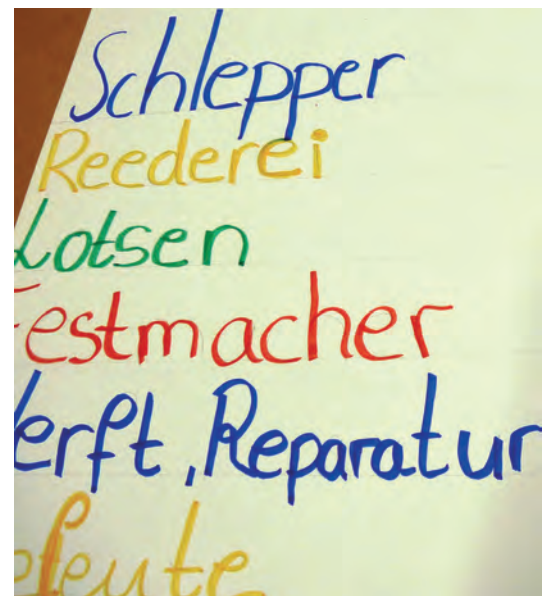 Schlepper
Reederei
Lotsen
estmacher
erft, Reparatur